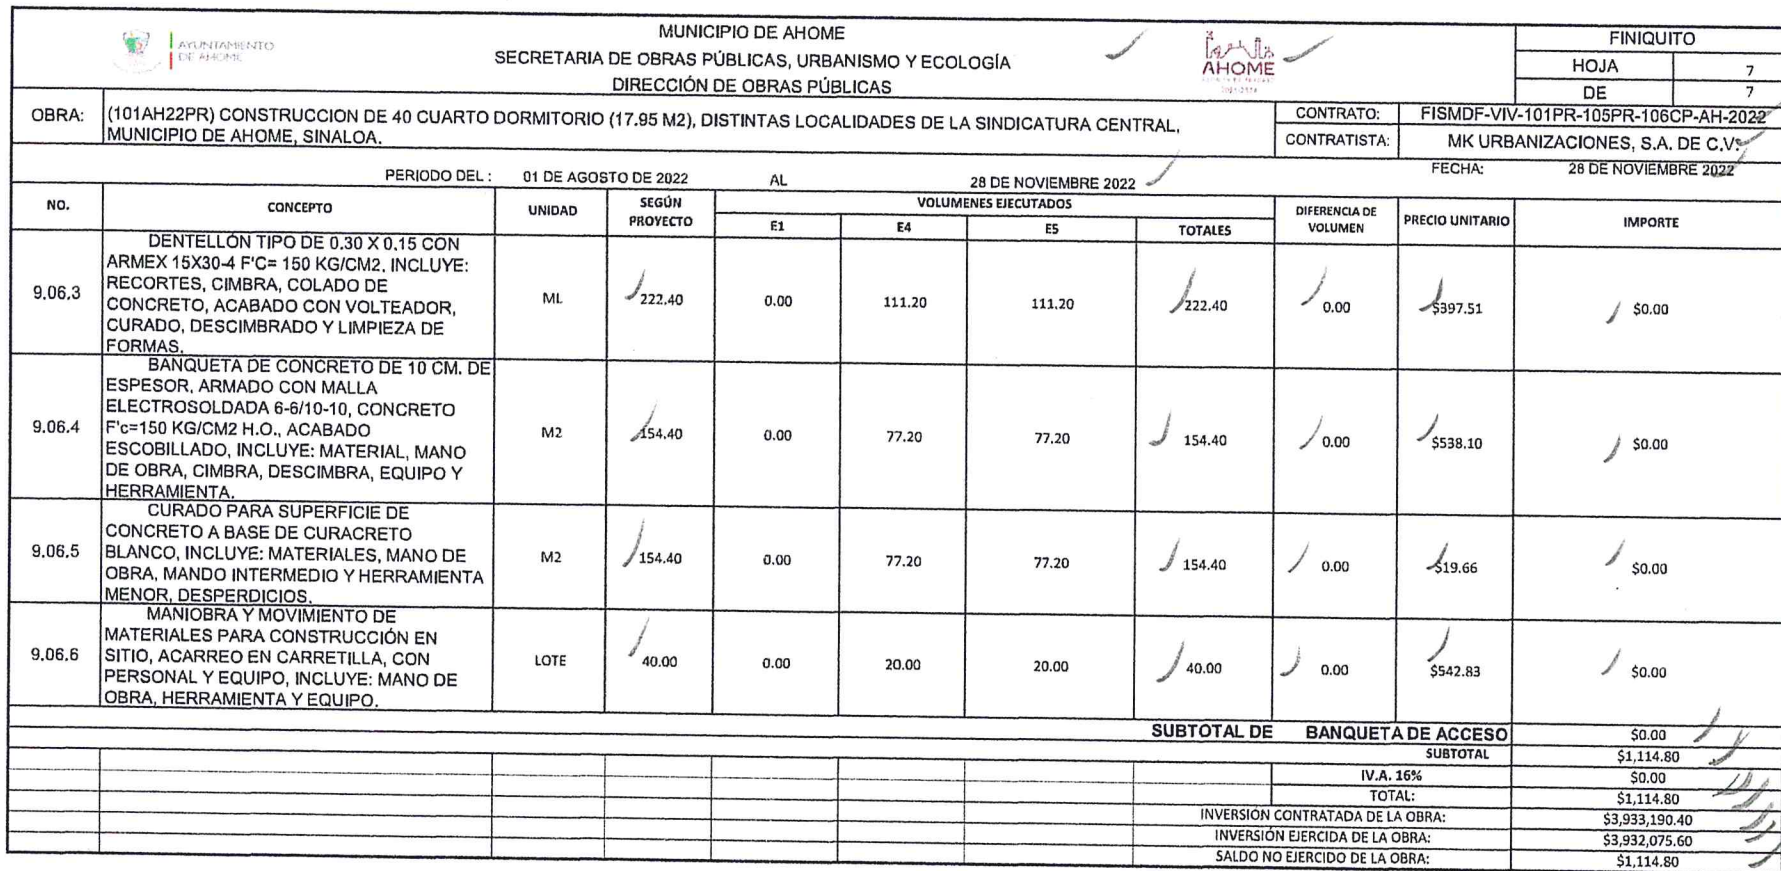 AYUNTAMIENTO
DE AHOME
MUNICIPIO DE AHOME
SECRETARIA DE OBRAS PÚBLICAS, URBANISMO Y ECOLOGÍA
DIRECCIÓN DE OBRAS PÚBLICAS
AHOME
FINIQUITO
HOJA 7
DE 7
OBRA: (101AH22PR) CONSTRUCCION DE 40 CUARTO DORMITORIO (17.95 M2), DISTINTAS LOCALIDADES DE LA SINDICATURA CENTRAL,
MUNICIPIO DE AHOME, SINALOA.
CONTRATO: FISMDF-VIV-101PR-105PR-106CP-AH-2022
CONTRATISTA: MK URBANIZACIONES, S.A. DE C.V.
PERIODO DEL : 01 DE AGOSTO DE 2022 AL 28 DE NOVIEMBRE 2022
FECHA: 28 DE NOVIEMBRE 2022
NO. CONCEPTO UNIDAD SEGÚN PROYECTO VOLUMENES EJECUTADOS DIFERENCIA DE VOLUMEN PRECIO UNITARIO IMPORTE
E1 E4 E5 TOTALES
DENTELLÓN TIPO DE 0.30 X 0.15 CON
ARMEX 15X30-4 F'C= 150 KG/CM2, INCLUYE:
RECORTES, CIMBRA, COLADO DE
CONCRETO, ACABADO CON VOLTEADOR,
CURADO, DESCIMBRADO Y LIMPIEZA DE
FORMAS.
9.06.3 ML 222.40 0.00 111.20 111.20 222.40 0.00 $397.51 $0.00
BANQUETA DE CONCRETO DE 10 CM. DE
ESPESOR, ARMADO CON MALLA
ELECTROSOLDADA 6-6/10-10, CONCRETO
F'c=150 KG/CM2 H.O., ACABADO
ESCOBILLADO, INCLUYE: MATERIAL, MANO
DE OBRA, CIMBRA, DESCIMBRA, EQUIPO Y
HERRAMIENTA.
9.06.4 M2 154.40 0.00 77.20 77.20 154.40 0.00 $538.10 $0.00
CURADO PARA SUPERFICIE DE
CONCRETO A BASE DE CURACRETO
BLANCO, INCLUYE: MATERIALES, MANO DE
OBRA, MANDO INTERMEDIO Y HERRAMIENTA
MENOR, DESPERDICIOS.
9.06.5 M2 154.40 0.00 77.20 77.20 154.40 0.00 $19.66 $0.00
MANIOBRA Y MOVIMIENTO DE
MATERIALES PARA CONSTRUCCIÓN EN
SITIO, ACARREO EN CARRETILLA, CON
PERSONAL Y EQUIPO, INCLUYE: MANO DE
OBRA, HERRAMIENTA Y EQUIPO.
9.06.6 LOTE 40.00 0.00 20.00 20.00 40.00 0.00 $542.83 $0.00
SUBTOTAL DE BANQUETA DE ACCESO $0.00
SUBTOTAL $1,114.80
IV.A. 16% $0.00
TOTAL: $1,114.80
INVERSIÓN CONTRATADA DE LA OBRA: $3,933,190.40
INVERSIÓN EJERCIDA DE LA OBRA: $3,932,075.60
SALDO NO EJERCIDO DE LA OBRA: $1,114.80